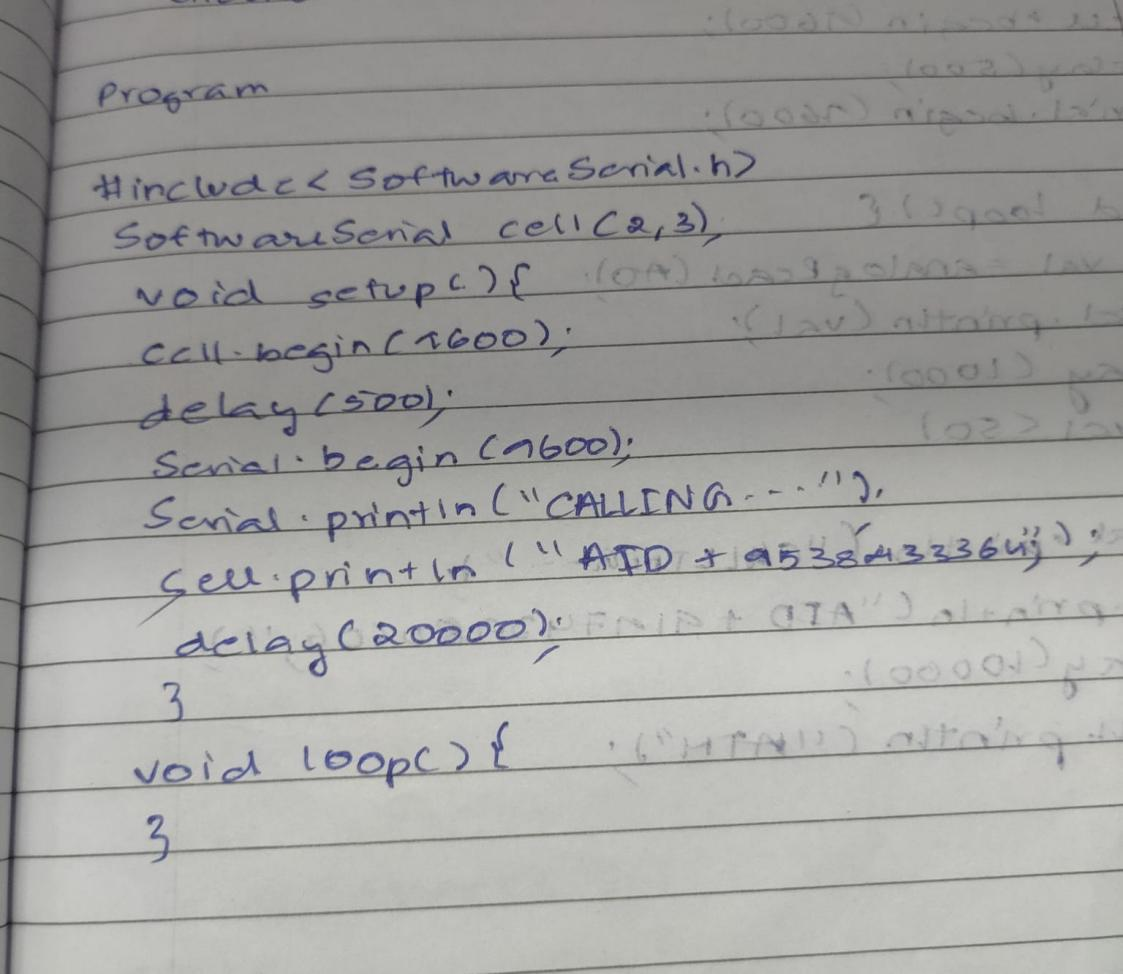 Program
#include< SoftwareSerial.h>
SoftwareSerial cell(2,3);
void setup(){
cell.begin(9600);
delay(500);
Serial.begin(9600);
Serial.println("CALLING...");
println("ATD +
delay(20000);
}
void loop(){
}